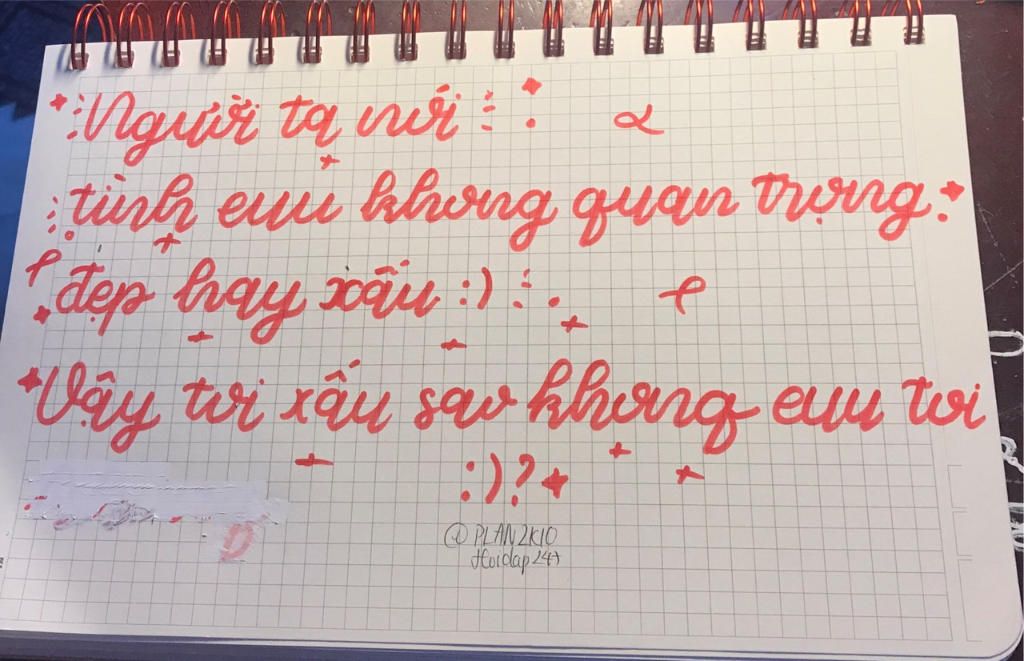 Người ta nói
tình euu khong quan trọng
đẹp hay xấu :)
Vậy toi xấu sao khong euu toi
:)?
@PLAN2K10
Hoidap247